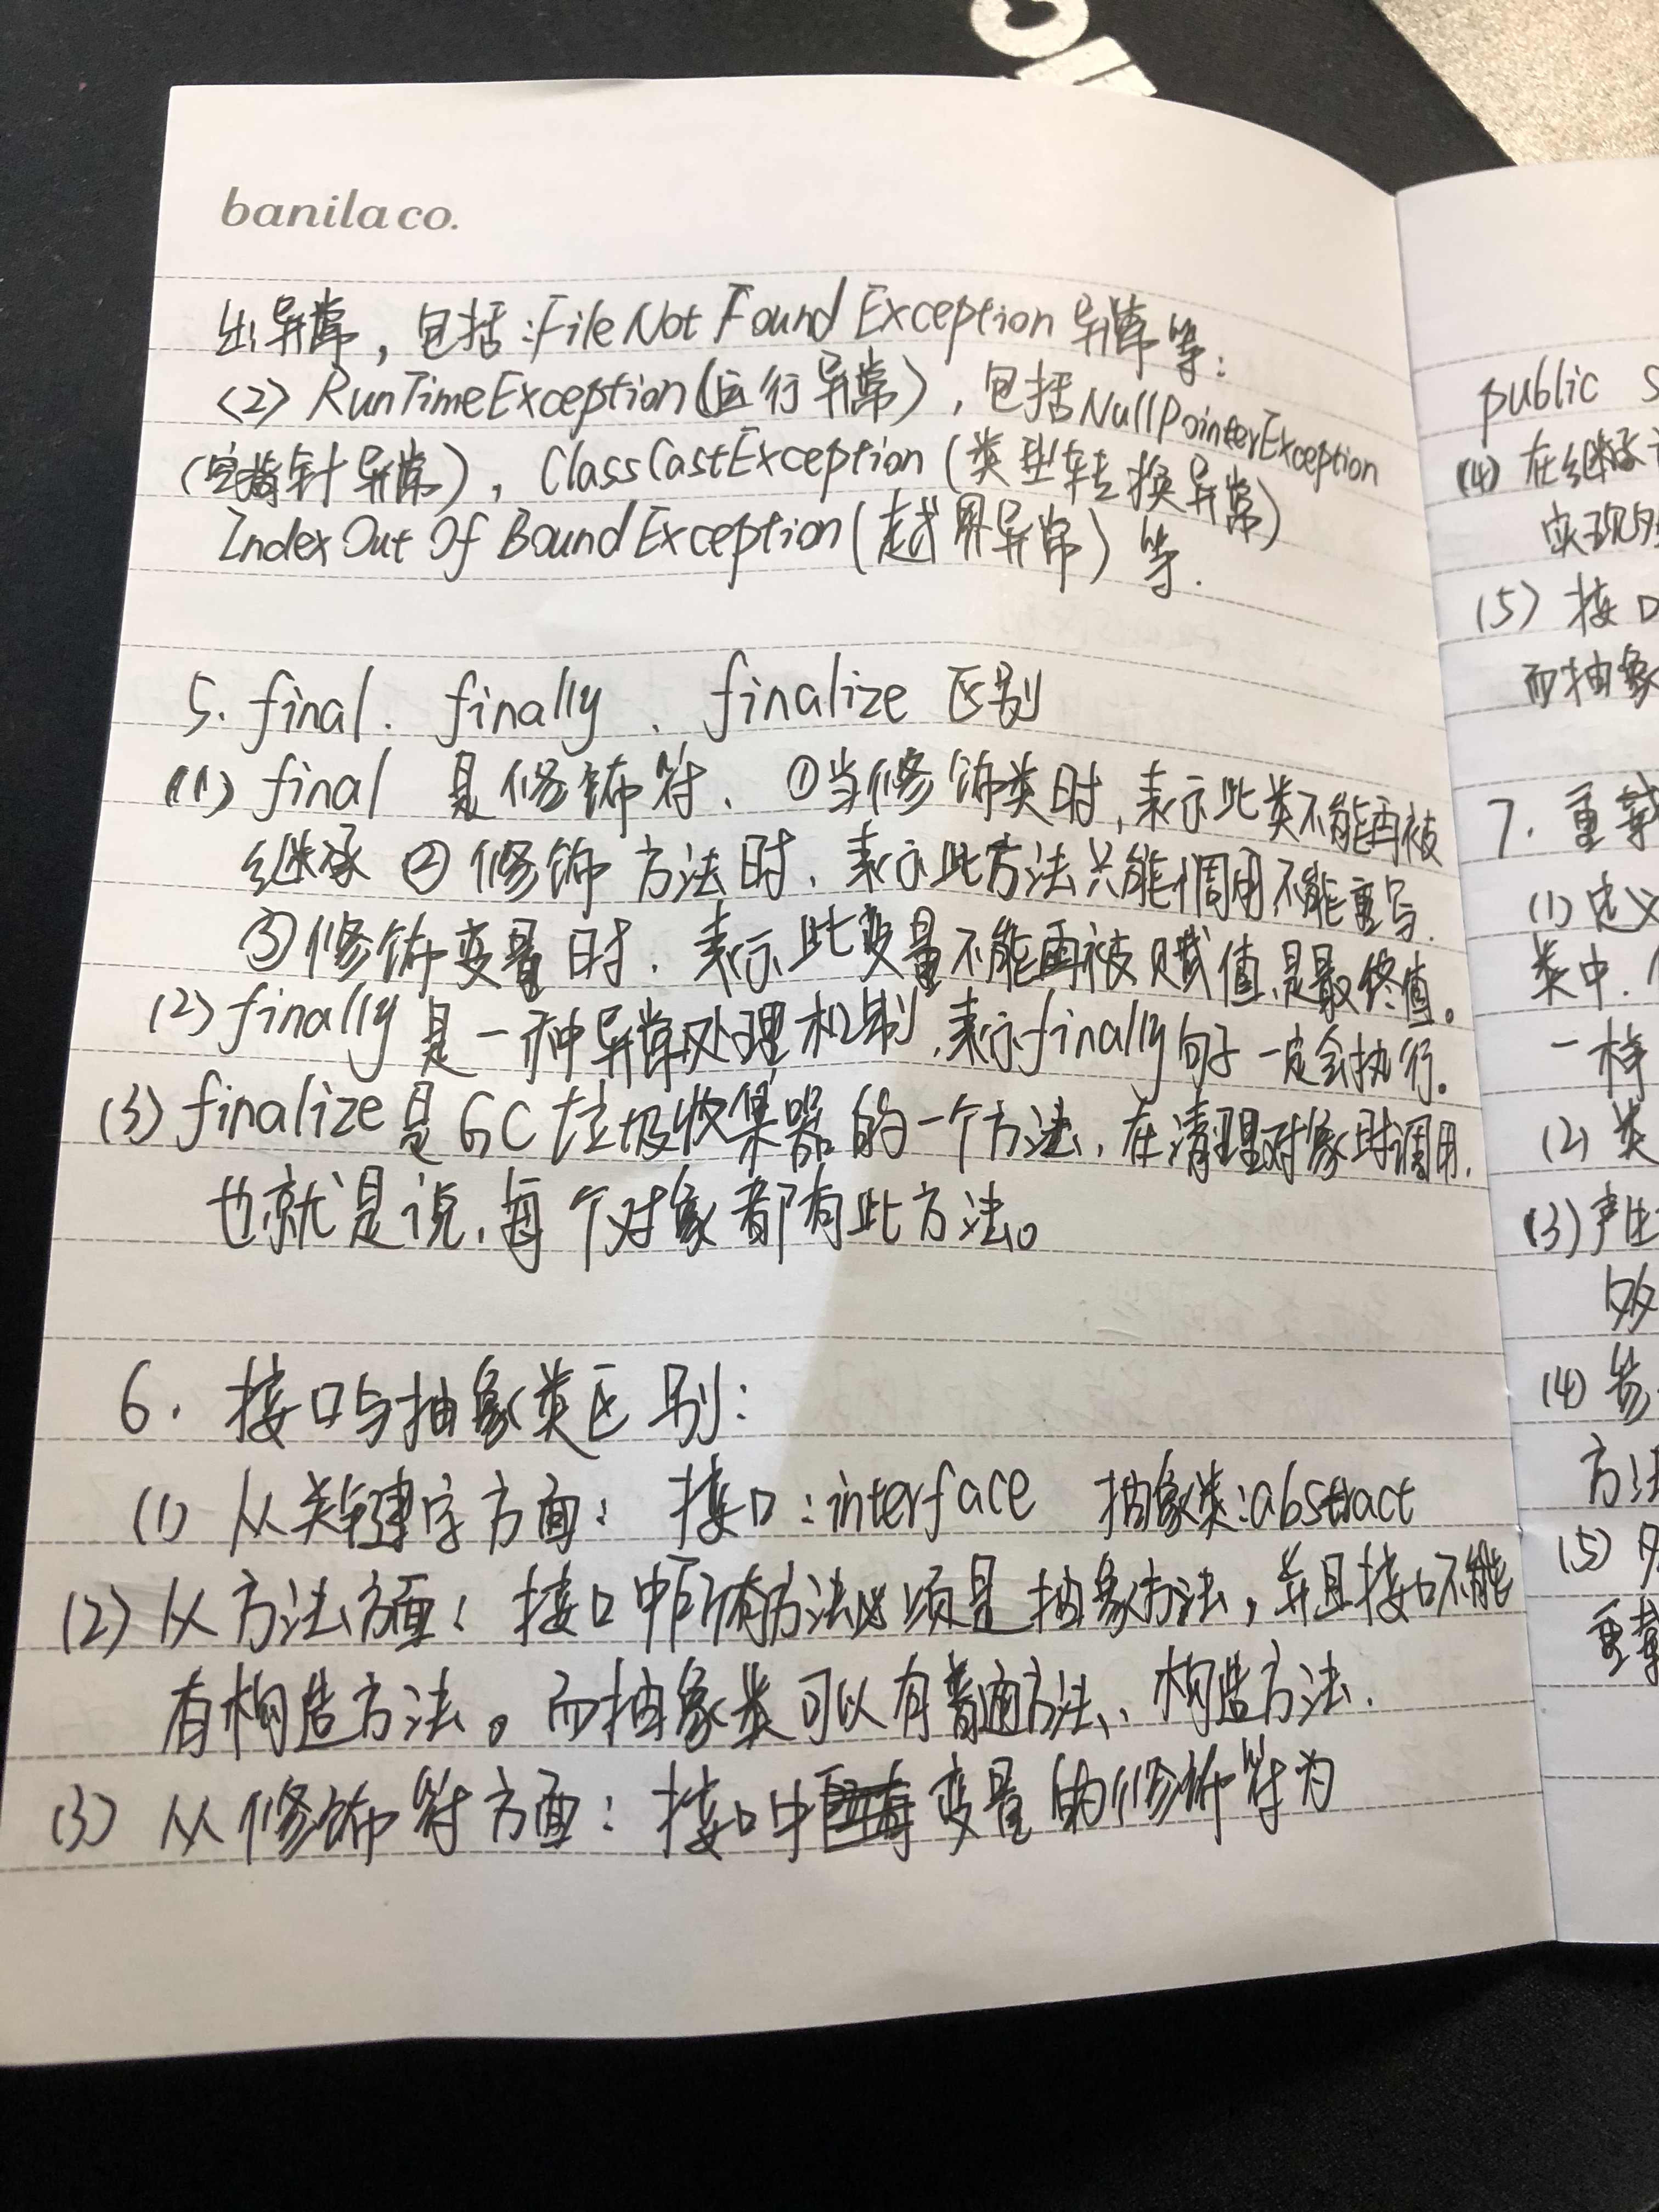 banila co.
出异常，包括：FileNotFoundException异常等；
(2) RunTimeException(运行异常)，包括NullPointerException
(空指针异常)，ClassCastException(类型转换异常)
IndexOutOfBoundException(越界异常)等.
5. final、finally、finalize 区别
(1) final 是修饰符、①当修饰类时，表示此类不能再被
继承 ②修饰方法时，表示此方法只能调用不能重写.
③修饰变量时，表示此变量不能再被赋值,是最终值。
(2) finally是一种异常处理机制,表示finally句子一定会执行。
(3) finalize是GC垃圾收集器的一个方法，在清理对象时调用,
也就是说,每个对象都有此方法。
6. 接口与抽象类区别：
(1) 从关键字方面：接口：interface 抽象类：abstract
(2) 从方法方面：接口中所有方法必须是抽象方法，并且接口不能
有构造方法。而抽象类可以有普通方法、构造方法.
(3) 从修饰符方面：接口中变量的修饰符为
public s
(4) 在继承
实现
(5) 接口
而抽象
7. 重载
(1) 定义
类中.
一样
(2) 类
(3) 产生
(4)
方法
(5)
重载